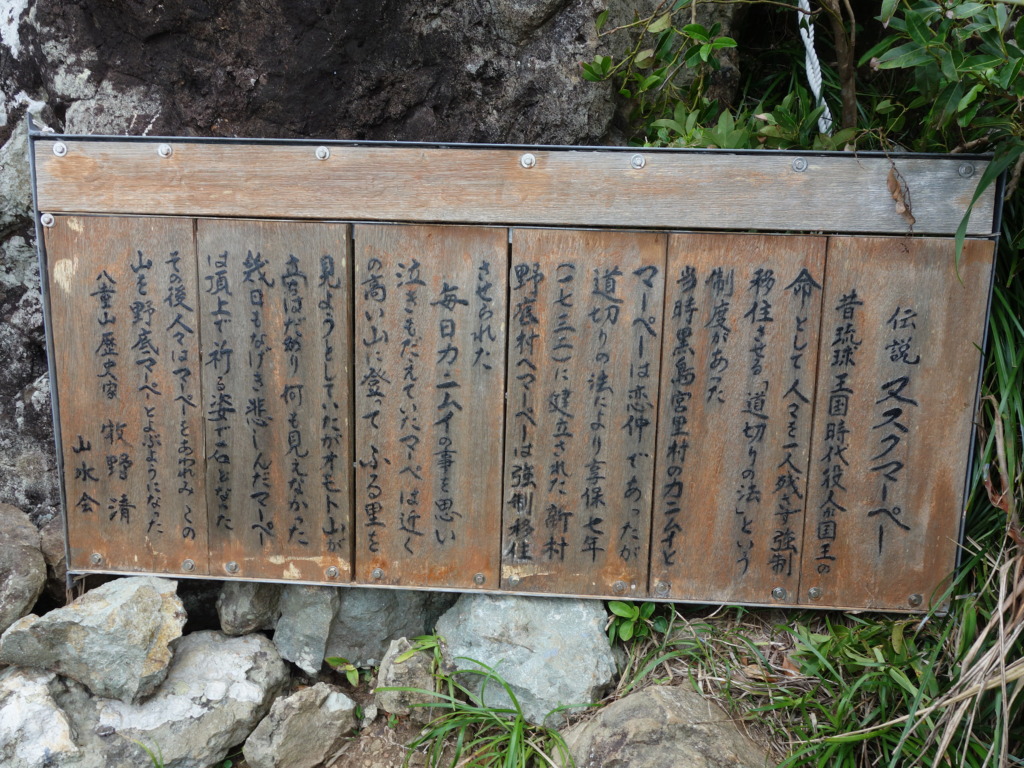 伝説 ヌスクマーペー
昔琉球王国時代役人が国王の
命として人々を一人残さず強制
移住させる「道切りの法」という
制度があった
当時黒島宮里村のカニムイと
マーペーは恋仲であったが
道切りの法により享保七年
(一七三二)に建立された新村
野底村へマーペーは強制移住
させられた
毎日カニムイの事を思い
泣きもだえていたマーペは近く
の高い山に登って ふる里を
見ようとしていたがオモト山が
立ちはだかり何も見えなかった
幾日もなげき悲しんだマーペー
は頂上で祈る姿で石となった
その後人々はマーペーをあわれみ この
山を野底マーペーとよぶようになった
八重山歴史家 牧野 清
山水会